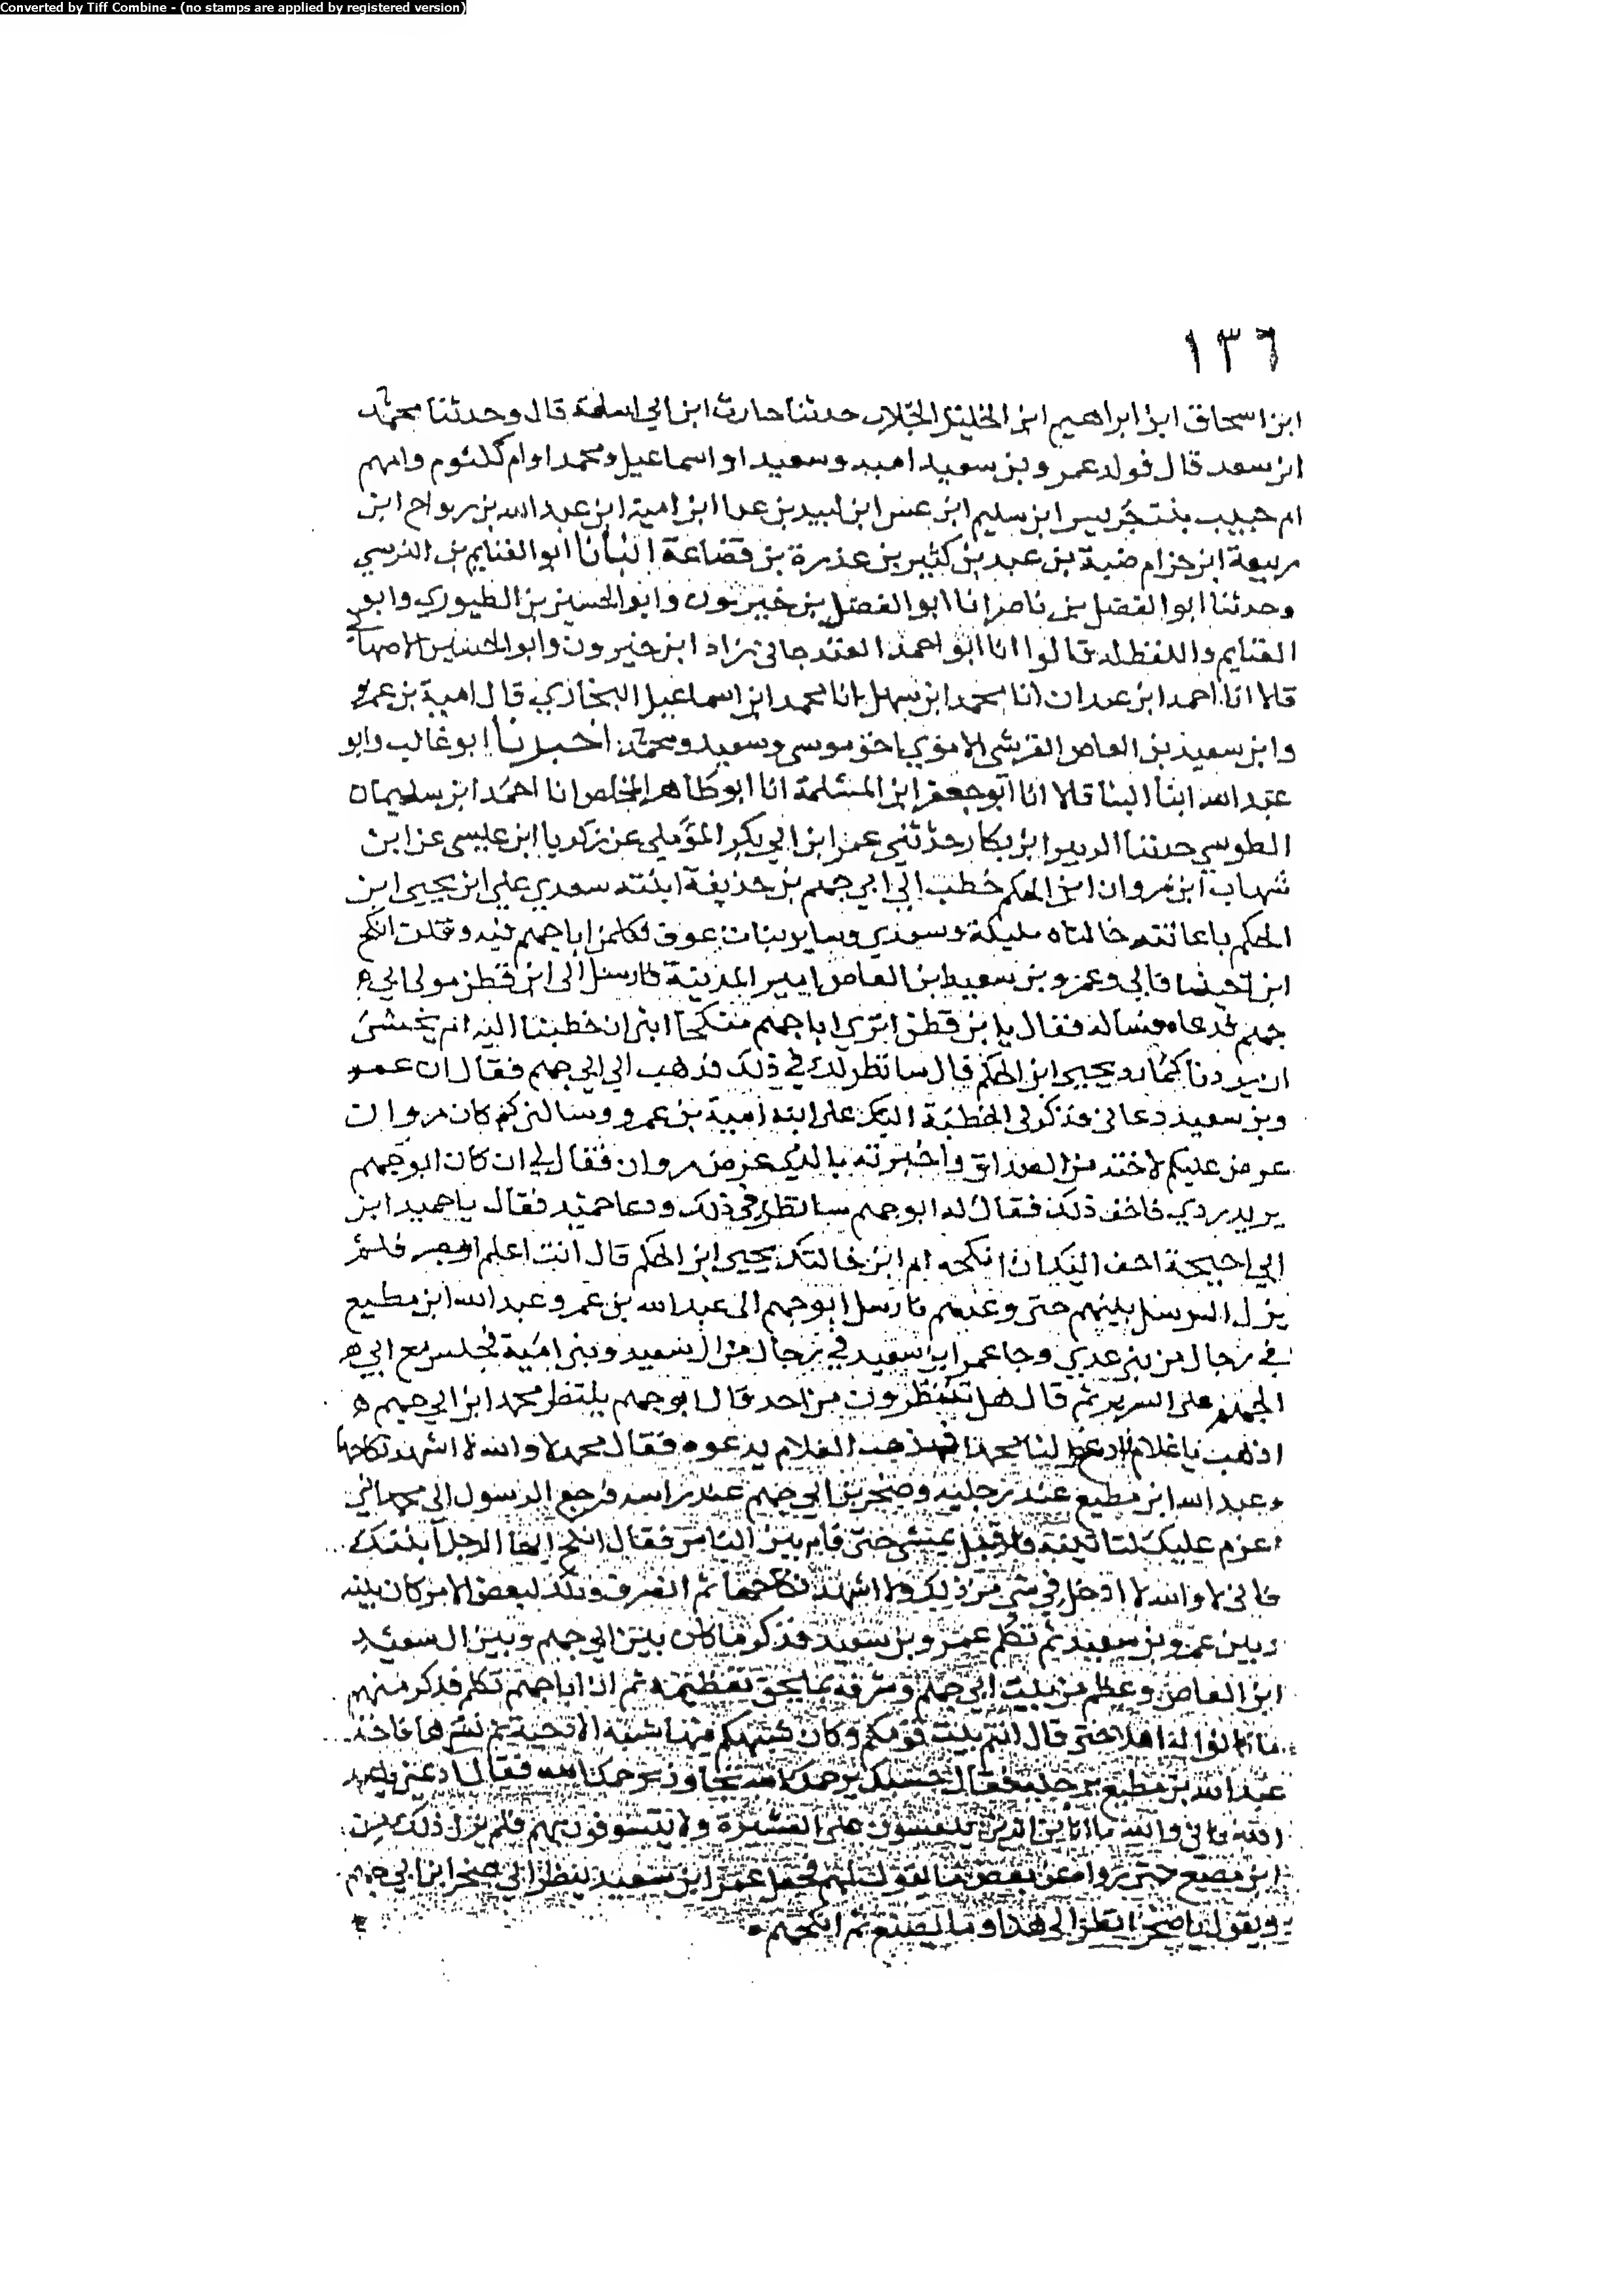 Converted by Tiff Combine - (no stamps are applied by registered version)
١٣٦
ابن اسحاق ابن ابراهيم ابن الخليل الجلاب حدثنا حارث ابن ابي اسامة قال وحدثنا محمد
ابن سعد قال فولد عمرو بن سعيد اميه وسعيدا واسماعيل ومحمدا وام كلثوم وامهم
ام حبيب بنت حريس ابن سليم ابن عش ابن لبيد بن عدا ابن امية ابن عبد الله بن رواح ابن
ربيعة ابن حزام ضبة بن عبد بن كثير بن عذرة بن قضاعة انبأنا ابو الغنايم بن النرسي
وحدثنا ابو الفضل بن ناصر انا ابو الفضل بن خيرون وابو الحسين بن الطيوري وابو
الغنايم واللفظ له قالوا انا ابو احمد الغندجاني زاد ابن خيرون وابو الحسين الاصبها
قالا انا احمد ابن عبدان انا محمد ابن سهل انا محمد ابن اسماعيل البخاري قال امية بن عمرو
وابن سعيد بن العاص القرشي الاموي اخو موسى وسعيد ومحمد اخبرنا ابو غالب وابو
عبد الله ابنا البنا قالا انا ابو جعفر ابن المسلمة انا ابو طاهر المخلص انا احمد ابن سليمان
الطوسي حدثنا الزبير ابن بكار حدثني عمر ابن ابي بكر المؤملي عن زكريا ابن عيسى عن ابن
شهاب ان مروان ابن الحكم خطب الى ابي جهم بن حذيفة ابنته سعدي على ابن يحيى ابن
الحكم خالتاه مليكة وسعدي وساير بنات عوف فكلمن ابا جهم فيه وقلت انكح
ابن اختنا فابى وعمرو بن سعيد ابن العاص امير المدينة فارسل الى ابن قطن مولى ابي
جهم فدعاه فساله فقال يا ابن قطن اترى ابا جهم منكحا ابني ان خطبنا اليه انا نخشى
ان يردنا كما رد يحيى ابن الحكم قال سانظر لك في ذلك فذهب الى ابي جهم فقال ان عمر
وبن سعيد دعاني فذكر لي الخطبة اليك على ابنه امية بن عمرو وسالني كم كان مروان
عرض عليكم لاخته من الصداق واخبرته بالذي عرض مروان فقال لي ان كان ابو جهم
يريد ردي فاخف ذلك فقال له ابو جهم سانظر في ذلك ودعا حميد فقال يا حميد ابن
ابي احيحة احب اليك ان انكحه ام ابن خالتك يحيى ابن الحكم قال انت اعلم فلم
يزل الرسل بينهم حتى وعدهم فارسل ابو جهم الى عبد الله بن عمر وعبد الله ابن مطيع
في رجال من بني عدي وجا عمر ابن سعيد في رجال من ال سعيد وبني امية فجلس مع ابي
الجهم على السرير ثم قال هل تنتظرون من احد قال ابو جهم ينتظر محمد ابن ابي جهم
اذهب يا غلام ادع لنا محمدا فذهب الغلام يدعوه فقال محمد لا والله لا اشهد نكاحها
وعبد الله ابن مطيع عند رجليه وصخر بن ابي جهم عند راسه فرجع الرسول الى محمد اني
اعزم عليك لتاتينه فاقبل يمشي حتى قام بين الناس فقال انكح ايها الرجل ابنتك
فاني لا والله لا ادخل في شي من ذلك ولا اشهد نكاحها ثم انصرف وذلك لبعض الامر كان بينه
وبين عمرو بن سعيد ثم تكلم عمرو بن سعيد فذكر ما كان بين ابي جهم وبين ال سعيد
ابن العاص وعظم من بيت ابي جهم وشرفه بما يحق تعظيمه ثم ان ابا جهم تكلم فذكر منهم
ما كانوا له اهلا حتى قال انتم بيت قومكم وكان فاخذ
عبد الله بن مطيع برجليه فقال حسبك يرحمك الله تجاوز يرحمك الله فقال دعني يا عبد
الله فاني والله ما انا من الذين ينفسون على العشيرة ولا فلم يزل ذلك من
ابن مطيع حتى بعض ما يقول لهم فجعل عمر ابن سعيد ينظر الى صخر ابن ابي جهم
ويقول يا صخر انظر الى هذا وما يصنع ثم انكحهم